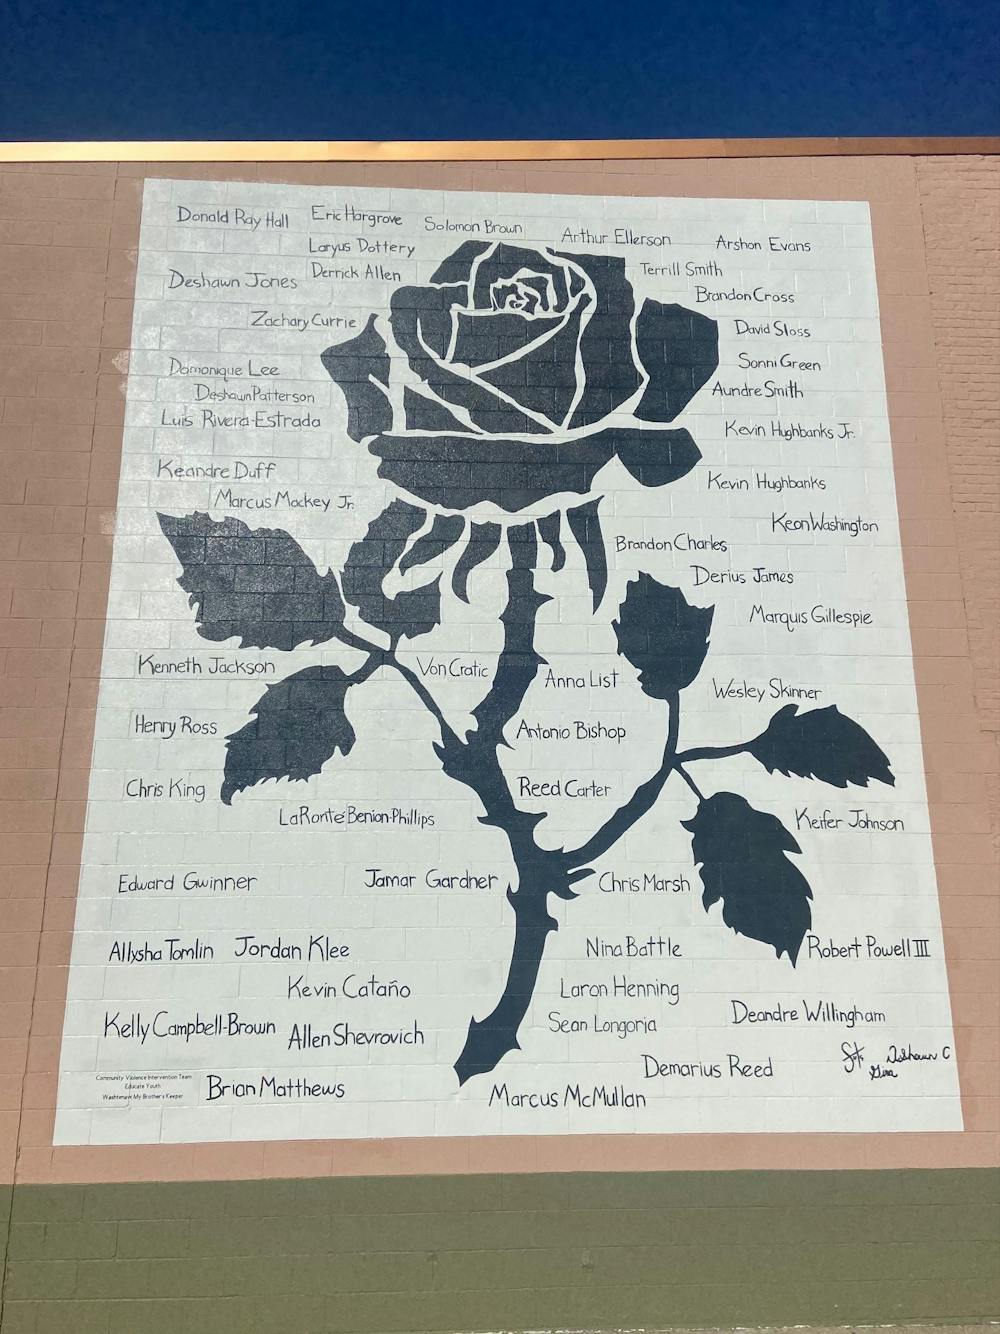 Donald Ray Hall
Eric Hargrove
Solomon Brown
Arthur Ellerson
Arshon Evans
Laryus Dottery
Deshawn Jones
Derrick Allen
Terrill Smith
Brandon Cross
Zachary Currie
David Sloss
Damonique Lee
Sonni Green
Deshawn Patterson
Aundre Smith
Luis Rivera-Estrada
Kevin Hughbanks Jr.
Keandre Duff
Kevin Hughbanks
Marcus Mackey Jr.
Keon Washington
Brandon Charles
Derius James
Marquis Gillespie
Kenneth Jackson
Von Cratic
Anna List
Wesley Skinner
Henry Ross
Antonio Bishop
Chris King
Reed Carter
LaRonte Benion-Phillips
Keifer Johnson
Edward Gwinner
Jamar Gardner
Chris Marsh
Allysha Tomlin
Jordan Klee
Nina Battle
Robert Powell III
Kevin Cataño
Laron Henning
Kelly Campbell-Brown
Allen Shevrovich
Sean Longoria
Deandre Willingham
Demarius Reed
Community Violence Intervention Team
Educate Youth
Washtenaw My Brother's Keeper
Brian Matthews
Marcus McMullan